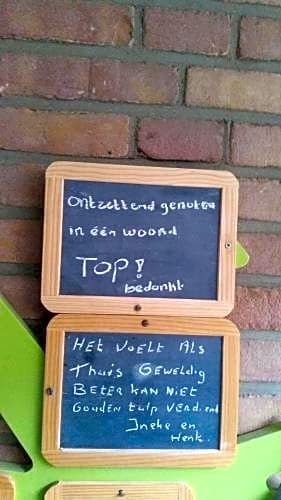 Ontzettend genoten
in één woord
TOP!
bedankt
HET VOELT ALS
Thuis GEWELDIG
BETER KAN NIET
GOUDEN tulp VERDIEND
Ineke en
Henk.